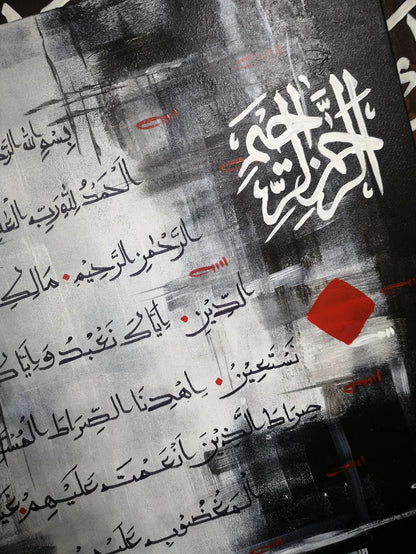 الرَّحْمٰنِ الرَّحِيمِ
بِسْمِ اللهِ
الْحَمْدُ لِلّٰهِ رَبِّ
الرَّحْمٰنِ الرَّحِيْمِ مَالِكِ
الدِّيْنِ إِيَّاكَ نَعْبُدُ وَإِيَّاكَ
نَسْتَعِيْنُ اِهْدِنَا الصِّرَاطَ
صِرَاطَ الَّذِيْنَ اَنْعَمْتَ عَلَيْهِمْ
الْمَغْضُوْبِ عَلَيْهِمْ